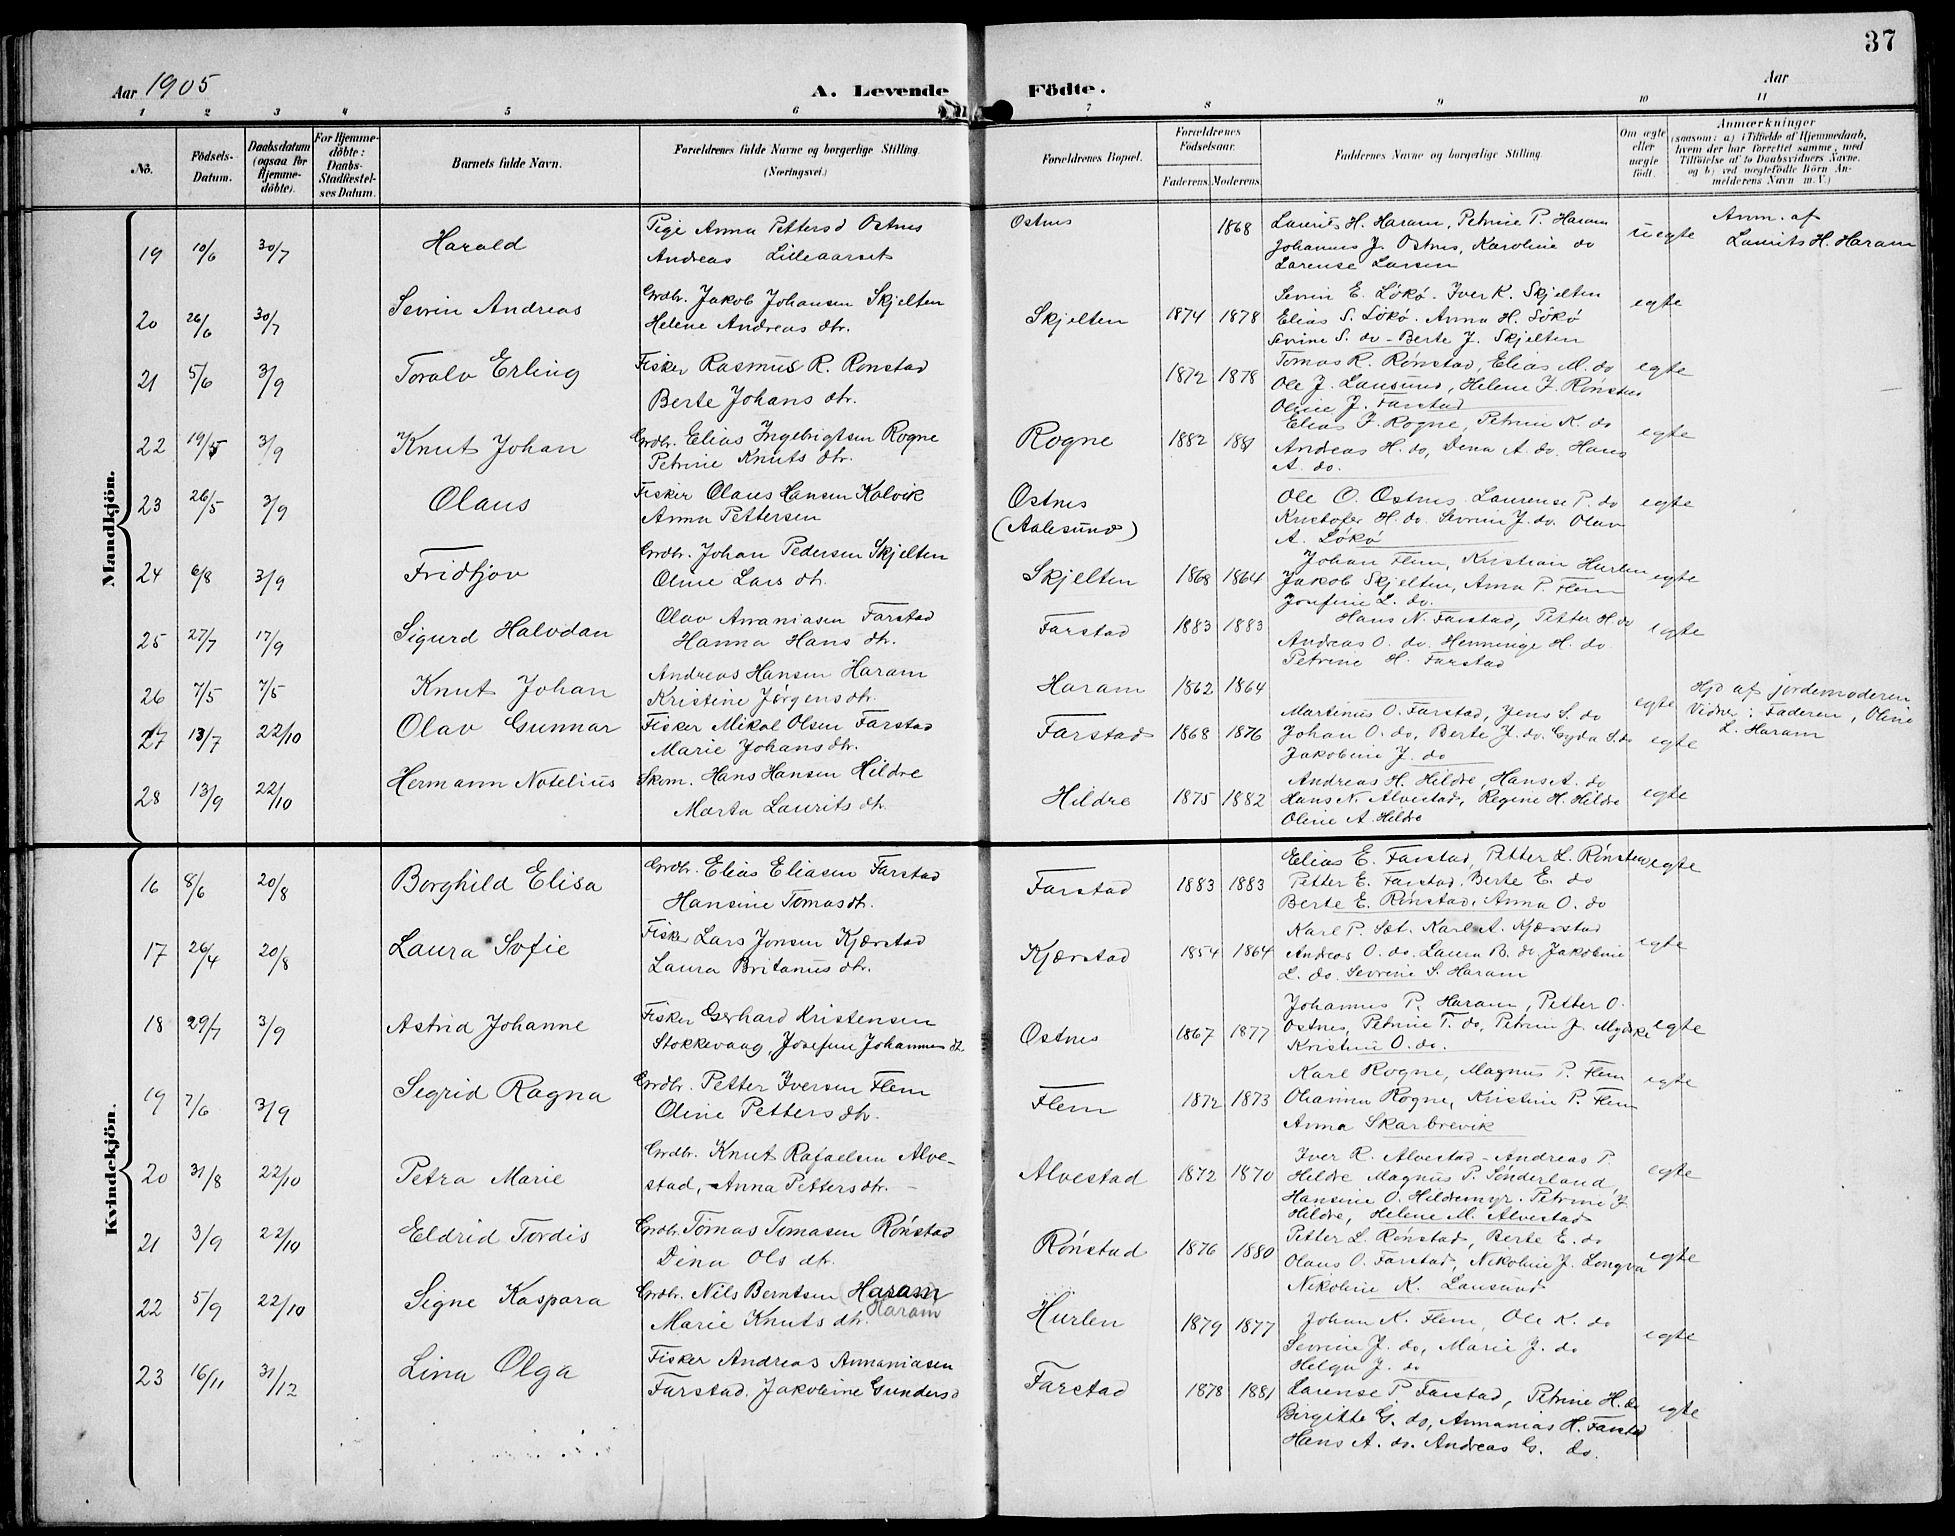 37
Aar 1905
A. Levende Födte.
Aar
1 2 3 4 5 6 7 8 9 10 11
No.
Födsels-Datum.
Daabsdatum (ogsaa for Hjemme-döbte).
For Hjemme-döbte: Daabs-Stadfæstel-ses Datum.
Barnets fulde Navn.
Forældrenes fulde Navne og borgerlige Stilling. (Næringsvei.)
Forældrenes Bopæl.
Forældrenes Födselsaar.
Faderens. Moderens.
Faddernes Navne og borgerlige Stilling.
Om ægte eller uægte født.
Anmærkninger
(saasom: a) i Tilfælde af Hjemmedaab, hvem der har forrettet samme, med Tilføielse af to Daabsvidners Navne, og b) ved uægtefödte Börn An-melderens Navn m.V.)
Mandkjön.
19 10/6 30/7 Harald
Pige Anna Pettersd Ostnes
Andreas Lilleaarset
Ostnes 1868
Laurits H. Haram, Petrine P. Haram
Johannes J. Ostnes, Karoline do
Larense Larsen
uegte
Anm. af
Laurits H. Haram
20 26/6 30/7 Sevrin Andreas
Grdbr. Jakob Johansen Skjelten
Helene Andreas dtr.
Skjelten 1874 1878
Sevrin E. Lökö. Iver K. Skjelten
Elias S. Lökö. Anna H. Lökö
Sevine S. do - Berte J. Skjelten
egte
21 5/6 3/9 Toralv Erling
Fisker Rasmus R. Rønstad
Berte Johans dtr.
1872 1878
Tomas R. Rønstad, Elias M. do
Ole J. Lausund, Helene J. Rønstad
Oline J. Farstad
egte
22 19/5 3/9 Knut Johan
Grdbr. Elias Ingebrigtsen Rogne
Petrine Knuts dtr.
Rogne 1882 1881
Elias J. Rogne, Petrine K. do
Andreas H. do, Dena A. do. Hans
A. do.
egte
23 26/5 3/9 Olaus
Fisker Olaus Hansen Kalvik
Anna Pettersen
Ostnes
(Aalesund)
Ole O. Ostnes. Laurense P. do
Kristofer H. do. Sevrine J. do. Olav
A. Lökö
egte
24 6/8 3/9 Fridtjov
Grdbr. Johan Pedersen Skjelten
Oline Lars dtr.
Skjelten 1868 1864
Johan Flem, Kristian Hurlen
Jakob Skjelten, Anna P. Flem
Josefine L. do.
egte
25 27/7 17/9 Sigurd Halvdan
Olav Ananiasen Farstad
Hanna Hans dtr.
Farstad 1883 1883
Hans N. Farstad, Petter H. do
Andreas O. do. Henninge H. do.
Petrine H. Farstad
egte
26 7/5 7/5 Knut Johan
Andreas Hansen Haram
Kristine Jørgens dtr.
Haram 1862 1864
egte
Hjd af jordemoderen
Vidner: Faderen, Oline
L. Haram
27 13/7 22/10 Olav Gunnar
Fisker Mikal Olsen Farstad
Marie Johans dtr.
Farstad 1868 1876
Martinus O. Farstad, Jens S. do
Johan O. do, Berte J. do. Gyda S. do
Jakobine J. do
egte
28 13/9 22/10 Hermann Notelius
Skom. Hans Hansen Hildre
Marta Laurits dtr.
Hildre 1875 1882
Andreas H. Hildre, Hans A. do
Hans N. Alvestad, Regine H. Hildre
Oline A. Hildre
egte
Kvindekjön.
16 8/6 20/8 Borghild Elisa
Grdbr. Elias Eliasen Farstad
Hansine Tomas dtr.
Farstad 1883 1883
Elias E. Farstad, Petter L. Rønstad
Petter E. Farstad. Berte E. do
Berte E. Rønstad. Anna O. do
egte
17 26/4 20/8 Laura Sofie
Fisker Lars Jonsen Kjærstad
Laura Britanus dtr.
Kjærstad 1854 1864
Karl P. Sæt. Karl A. Kjærstad
Andreas O. do. Laura B. do Jakobine
L. do. Sevrine S. Haram
egte
18 29/7 3/9 Astrid Johanne
Fisker Gerhard Kristensen
Stokkevaag, Josefine Johannes dtr
Ostnes 1867 1877
Johannes P. Haram, Petter O.
Ostnes, Petrine T. do, Petrine J. Myrske
Kristine O. do.
egte
19 7/6 3/9 Segrid Ragna
Grdbr. Petter Iversen Flem
Oline Petters dtr.
Flem 1872 1873
Karl Rogne, Magnus P. Flem
Ohanna Rogne, Kristine P. Flem
Anna Skarbrevik
egte
20 31/8 22/10 Petra Marie
Grdbr. Knut Rafaelsen Alve-
stad, Anna Petters dtr.
Alvestad 1872 1870
Iver R. Alvestad - Andreas P.
Hildre Magnus P. Sønderland,
Hansine O. Hildremyr. Petrine J.
Hildre, Helene M. Alvestad
egte
21 3/9 22/10 Eldrid Tordis
Grdbr. Tomas Tomasen Rønstad
Dina Ols dtr.
Rønstad 1876 1880
Petter L. Rønstad, Berte E. do
Olaus O. Farstad, Nikoline J. Longva
Nikoline K. Lausund
egte
22 5/9 22/10 Signe Kaspara
Grdbr. Nils Berntsen Haram
Haram
Marie Knuts dtr.
Hurlen 1879 1877
Johan K. Flem, Ole K. do
Sevrine J. do, Marie J. do
Helga J. do
egte
23 16/11 31/12 Lina Olga
Fisker Andreas Annaniasen
Farstad. Jakobine Gundersd
Farstad 1878 1881
Larense P. Farstad, Petrine H. do
Birgitte G. do, Annanias H. Farstad
Hans A. do. Andreas G. do.
egte